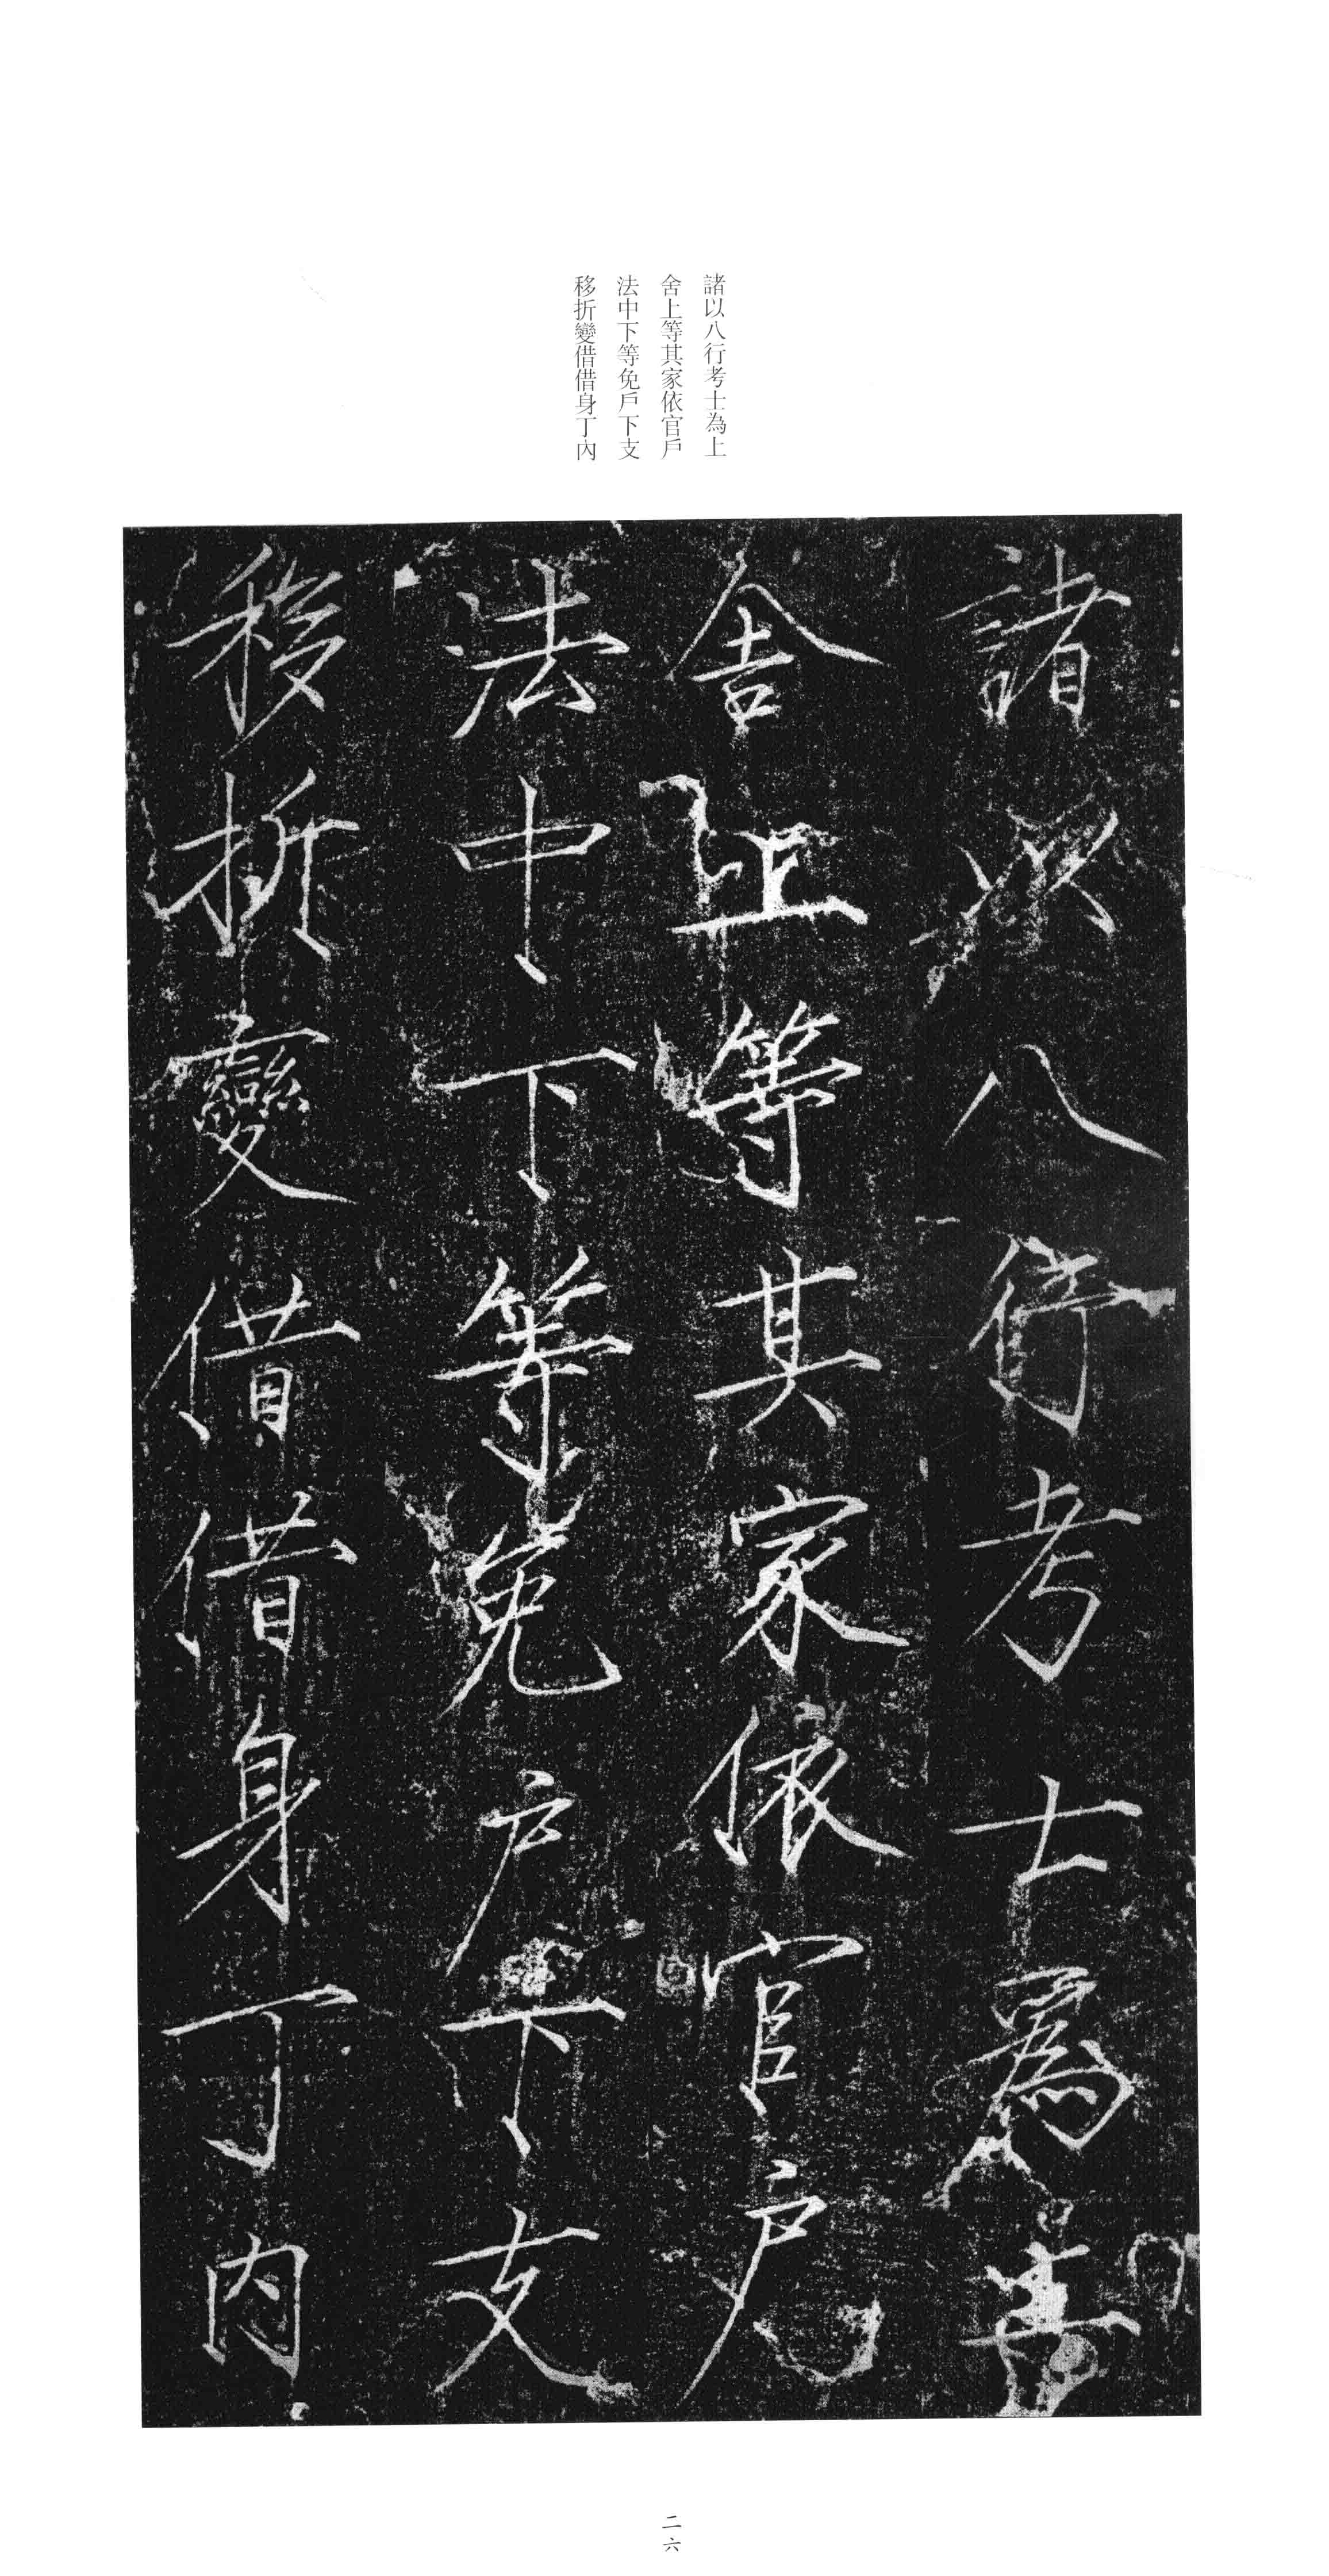 諸以八行考士為上
舍上等其家依官戶
法中下等免戶下支
移折變借借身丁內
諸以八行考士為上
舍上等其家依官戶
法中下等免戶下支
移折變借借身丁內
二六